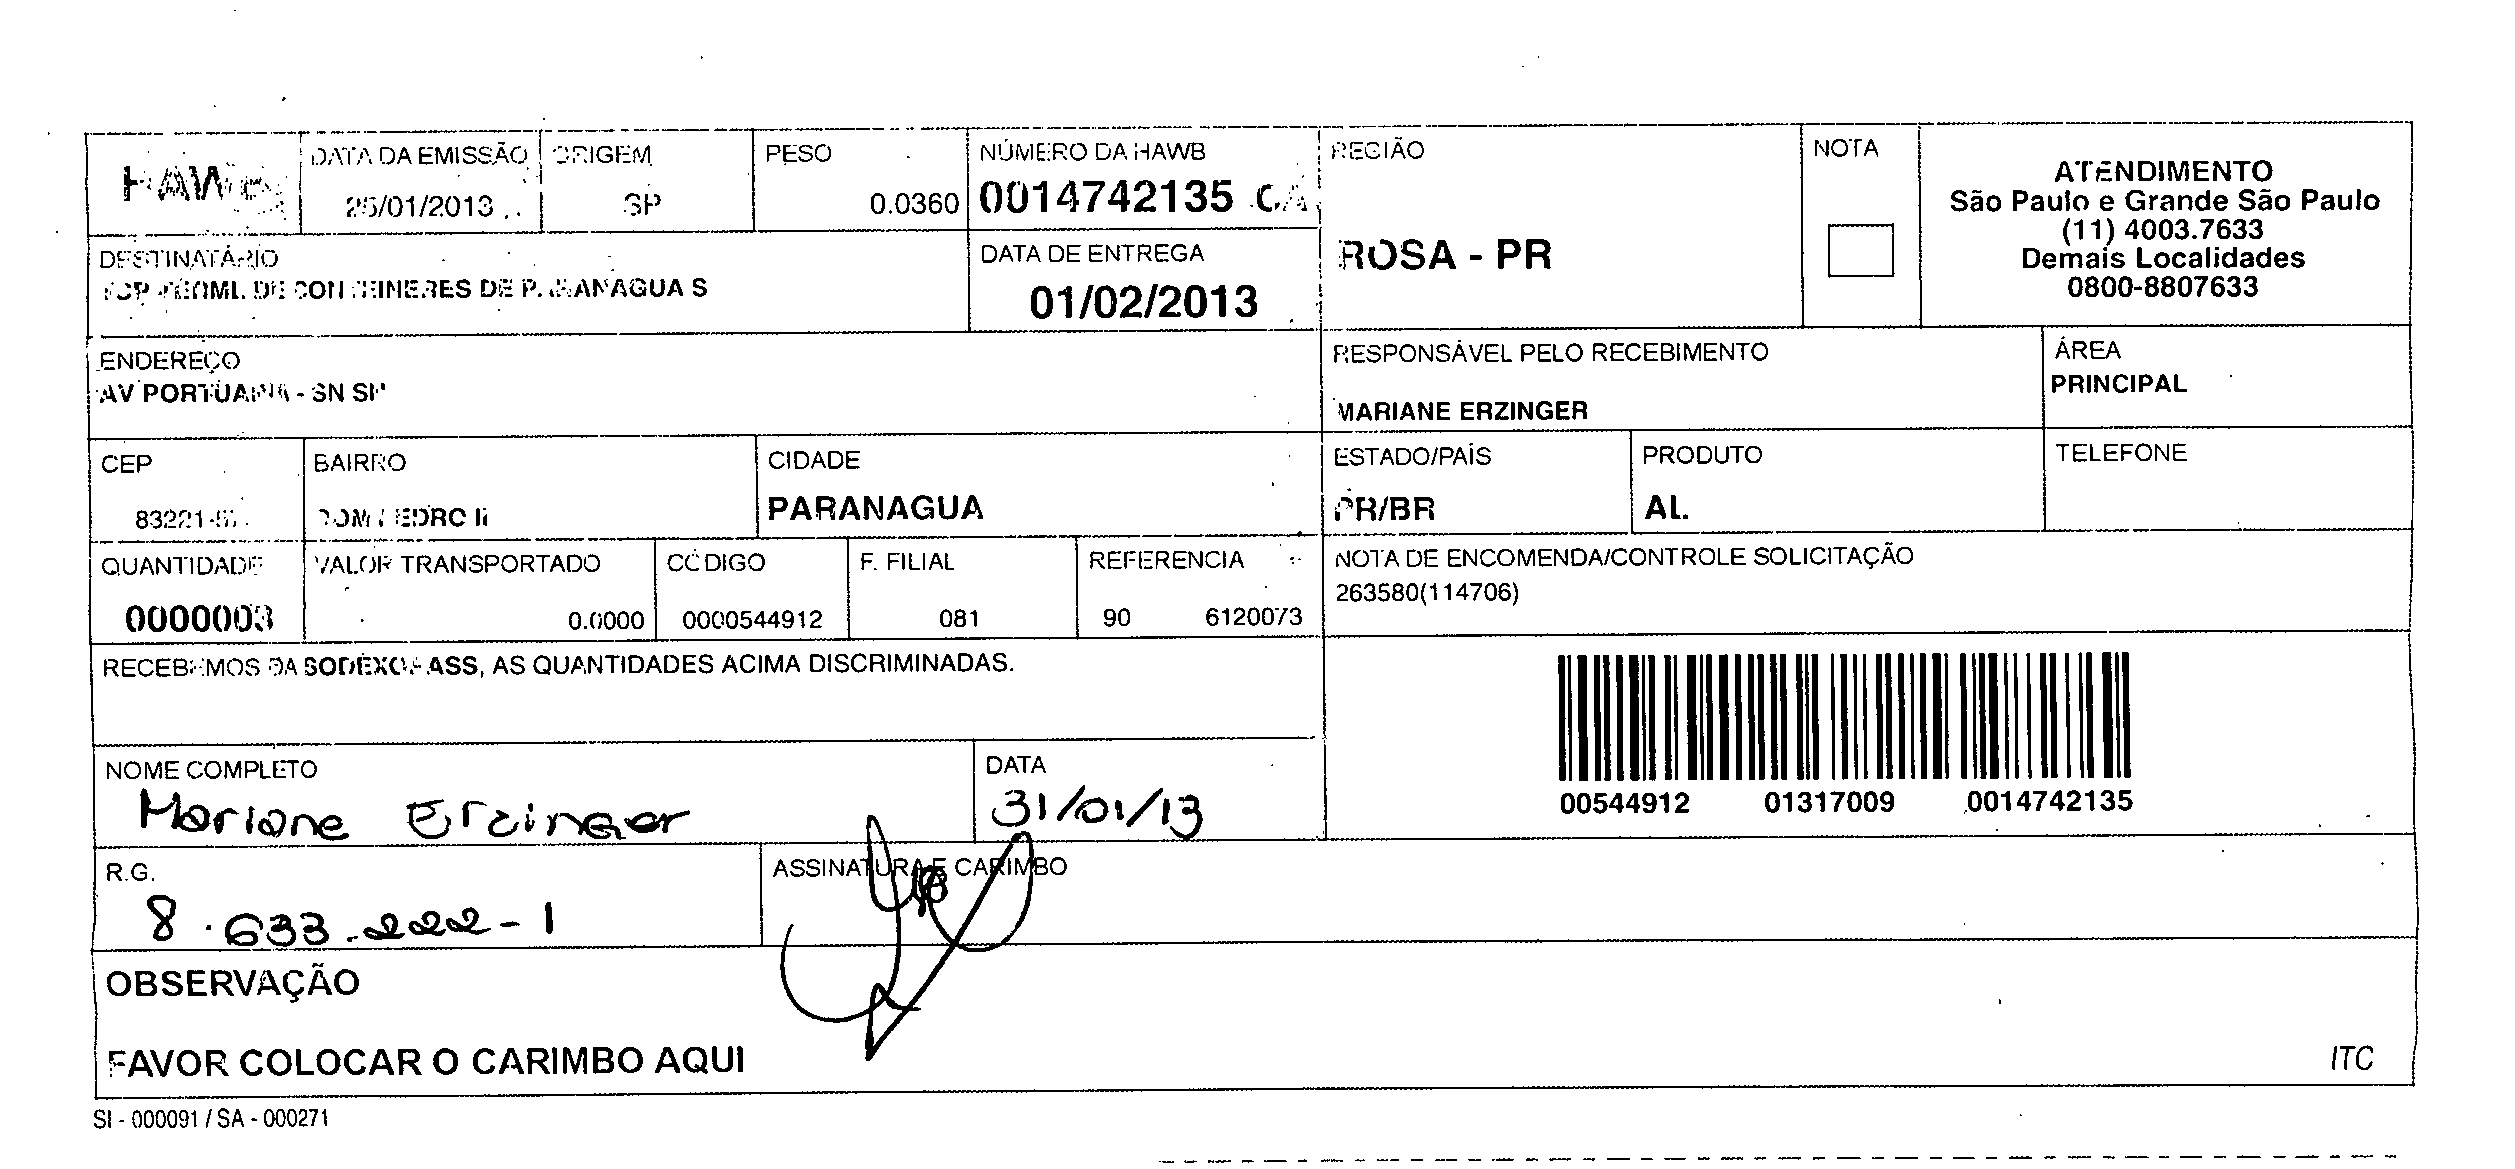 HAWB
DATA DA EMISSÃO
25/01/2013
ORIGEM
SP
PESO
0.0360
NÚMERO DA HAWB
0014742135 CA
REGIÃO
ROSA - PR
NOTA
ATENDIMENTO
São Paulo e Grande São Paulo
(11) 4003.7633
Demais Localidades
0800-8807633
DESTINATÁRIO
DE CONTEINERES DE PARANAGUA S
DATA DE ENTREGA
01/02/2013
ENDEREÇO
AV PORTUARIA - SN
RESPONSÁVEL PELO RECEBIMENTO
MARIANE ERZINGER
ÁREA
PRINCIPAL
CEP
BAIRRO
DOM PEDRO II
CIDADE
PARANAGUA
ESTADO/PAÍS
PR/BR
PRODUTO
AL.
TELEFONE
QUANTIDADE
0000003
VALOR TRANSPORTADO
0.0000
CÓDIGO
0000544912
F. FILIAL
081
REFERENCIA
90 6120073
NOTA DE ENCOMENDA/CONTROLE SOLICITAÇÃO
263580(114706)
RECEBEMOS DA SODEXO PASS, AS QUANTIDADES ACIMA DISCRIMINADAS.
00544912 01317009 0014742135
NOME COMPLETO
Mariane Erzinger
DATA
31/01/13
R.G.
8.633.222-1
ASSINATURA E CARIMBO
OBSERVAÇÃO
FAVOR COLOCAR O CARIMBO AQUI
ITC
SI - 000091 / SA - 000271